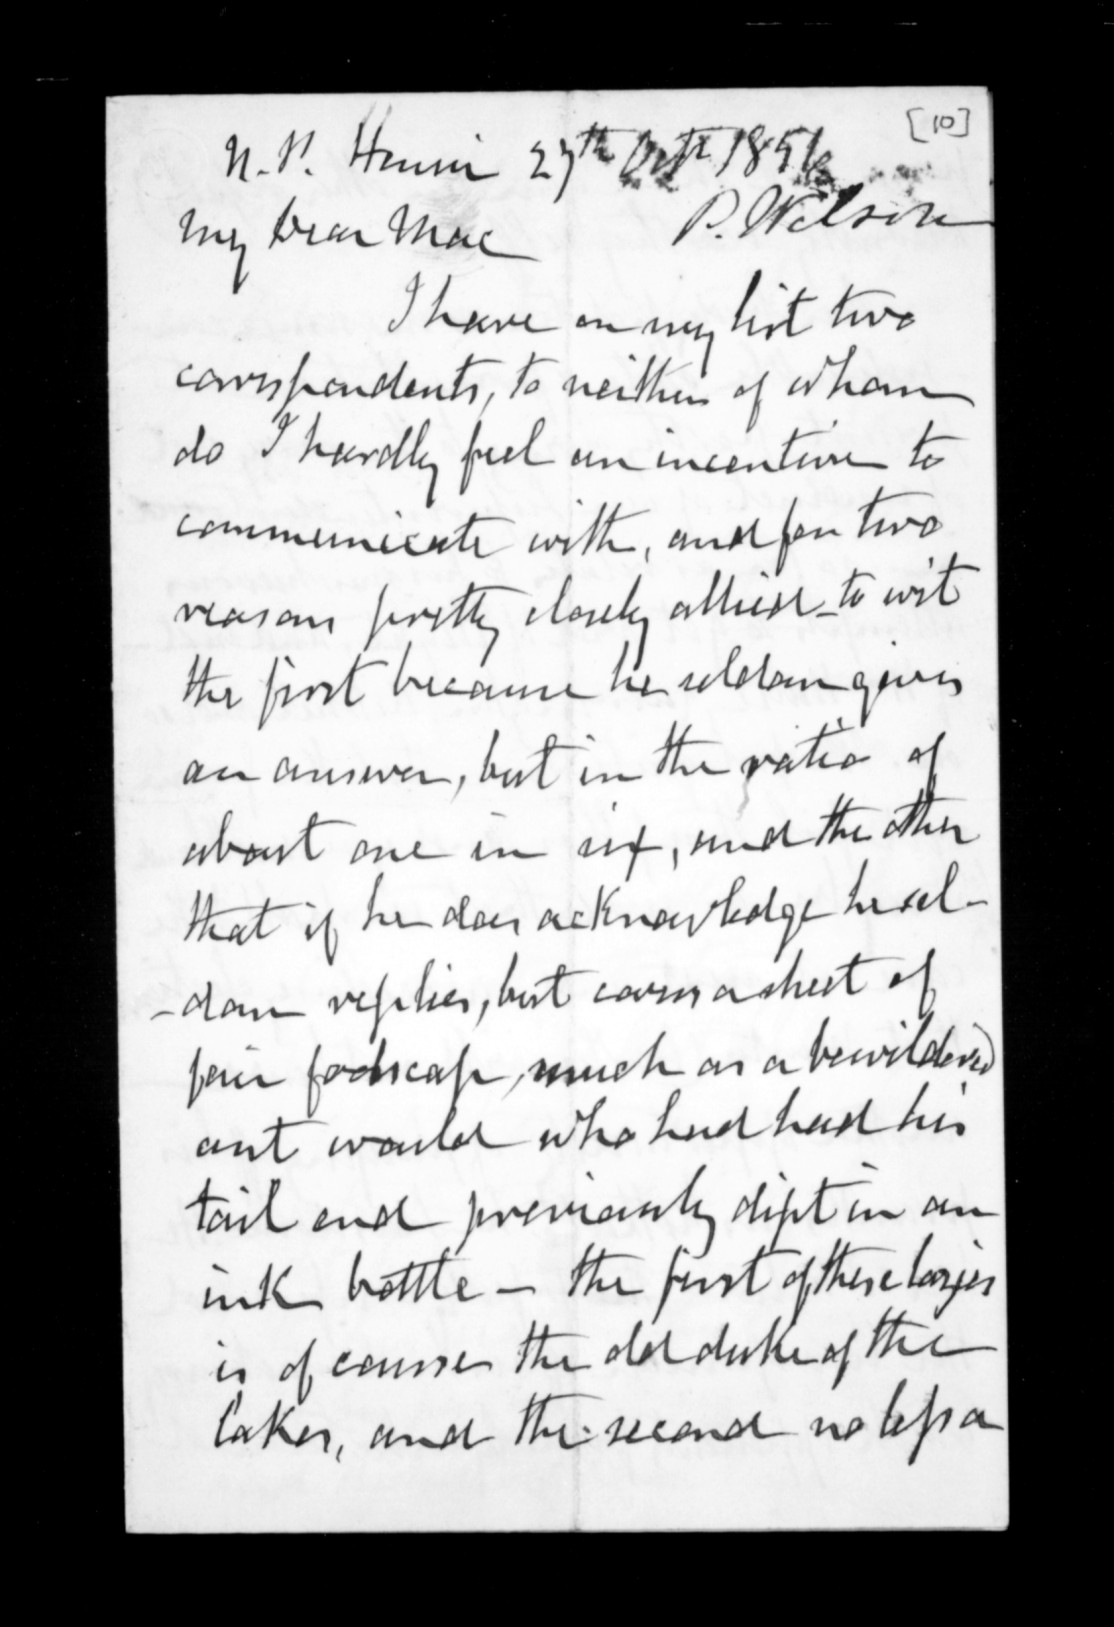 [10]
N. P. 27th Octr 185
My Dear Mac P. Wilson
I have on my list two
correspondents, to neither of whom
do I hardly feel an incentive to
communicate with, and for two
reasons pretty closely allied - to wit
the first because he seldom gives
an answer, but in the ratio of
about one in six, and the other
that if he does acknowledge he sel-
-dom replies, but covers a sheet of
fair foolscap, much as a bewildered
ant would who had had his
tail end previously dipt in an
ink bottle - the first of these
is of course the old duke of the
lakes, and the second no less a